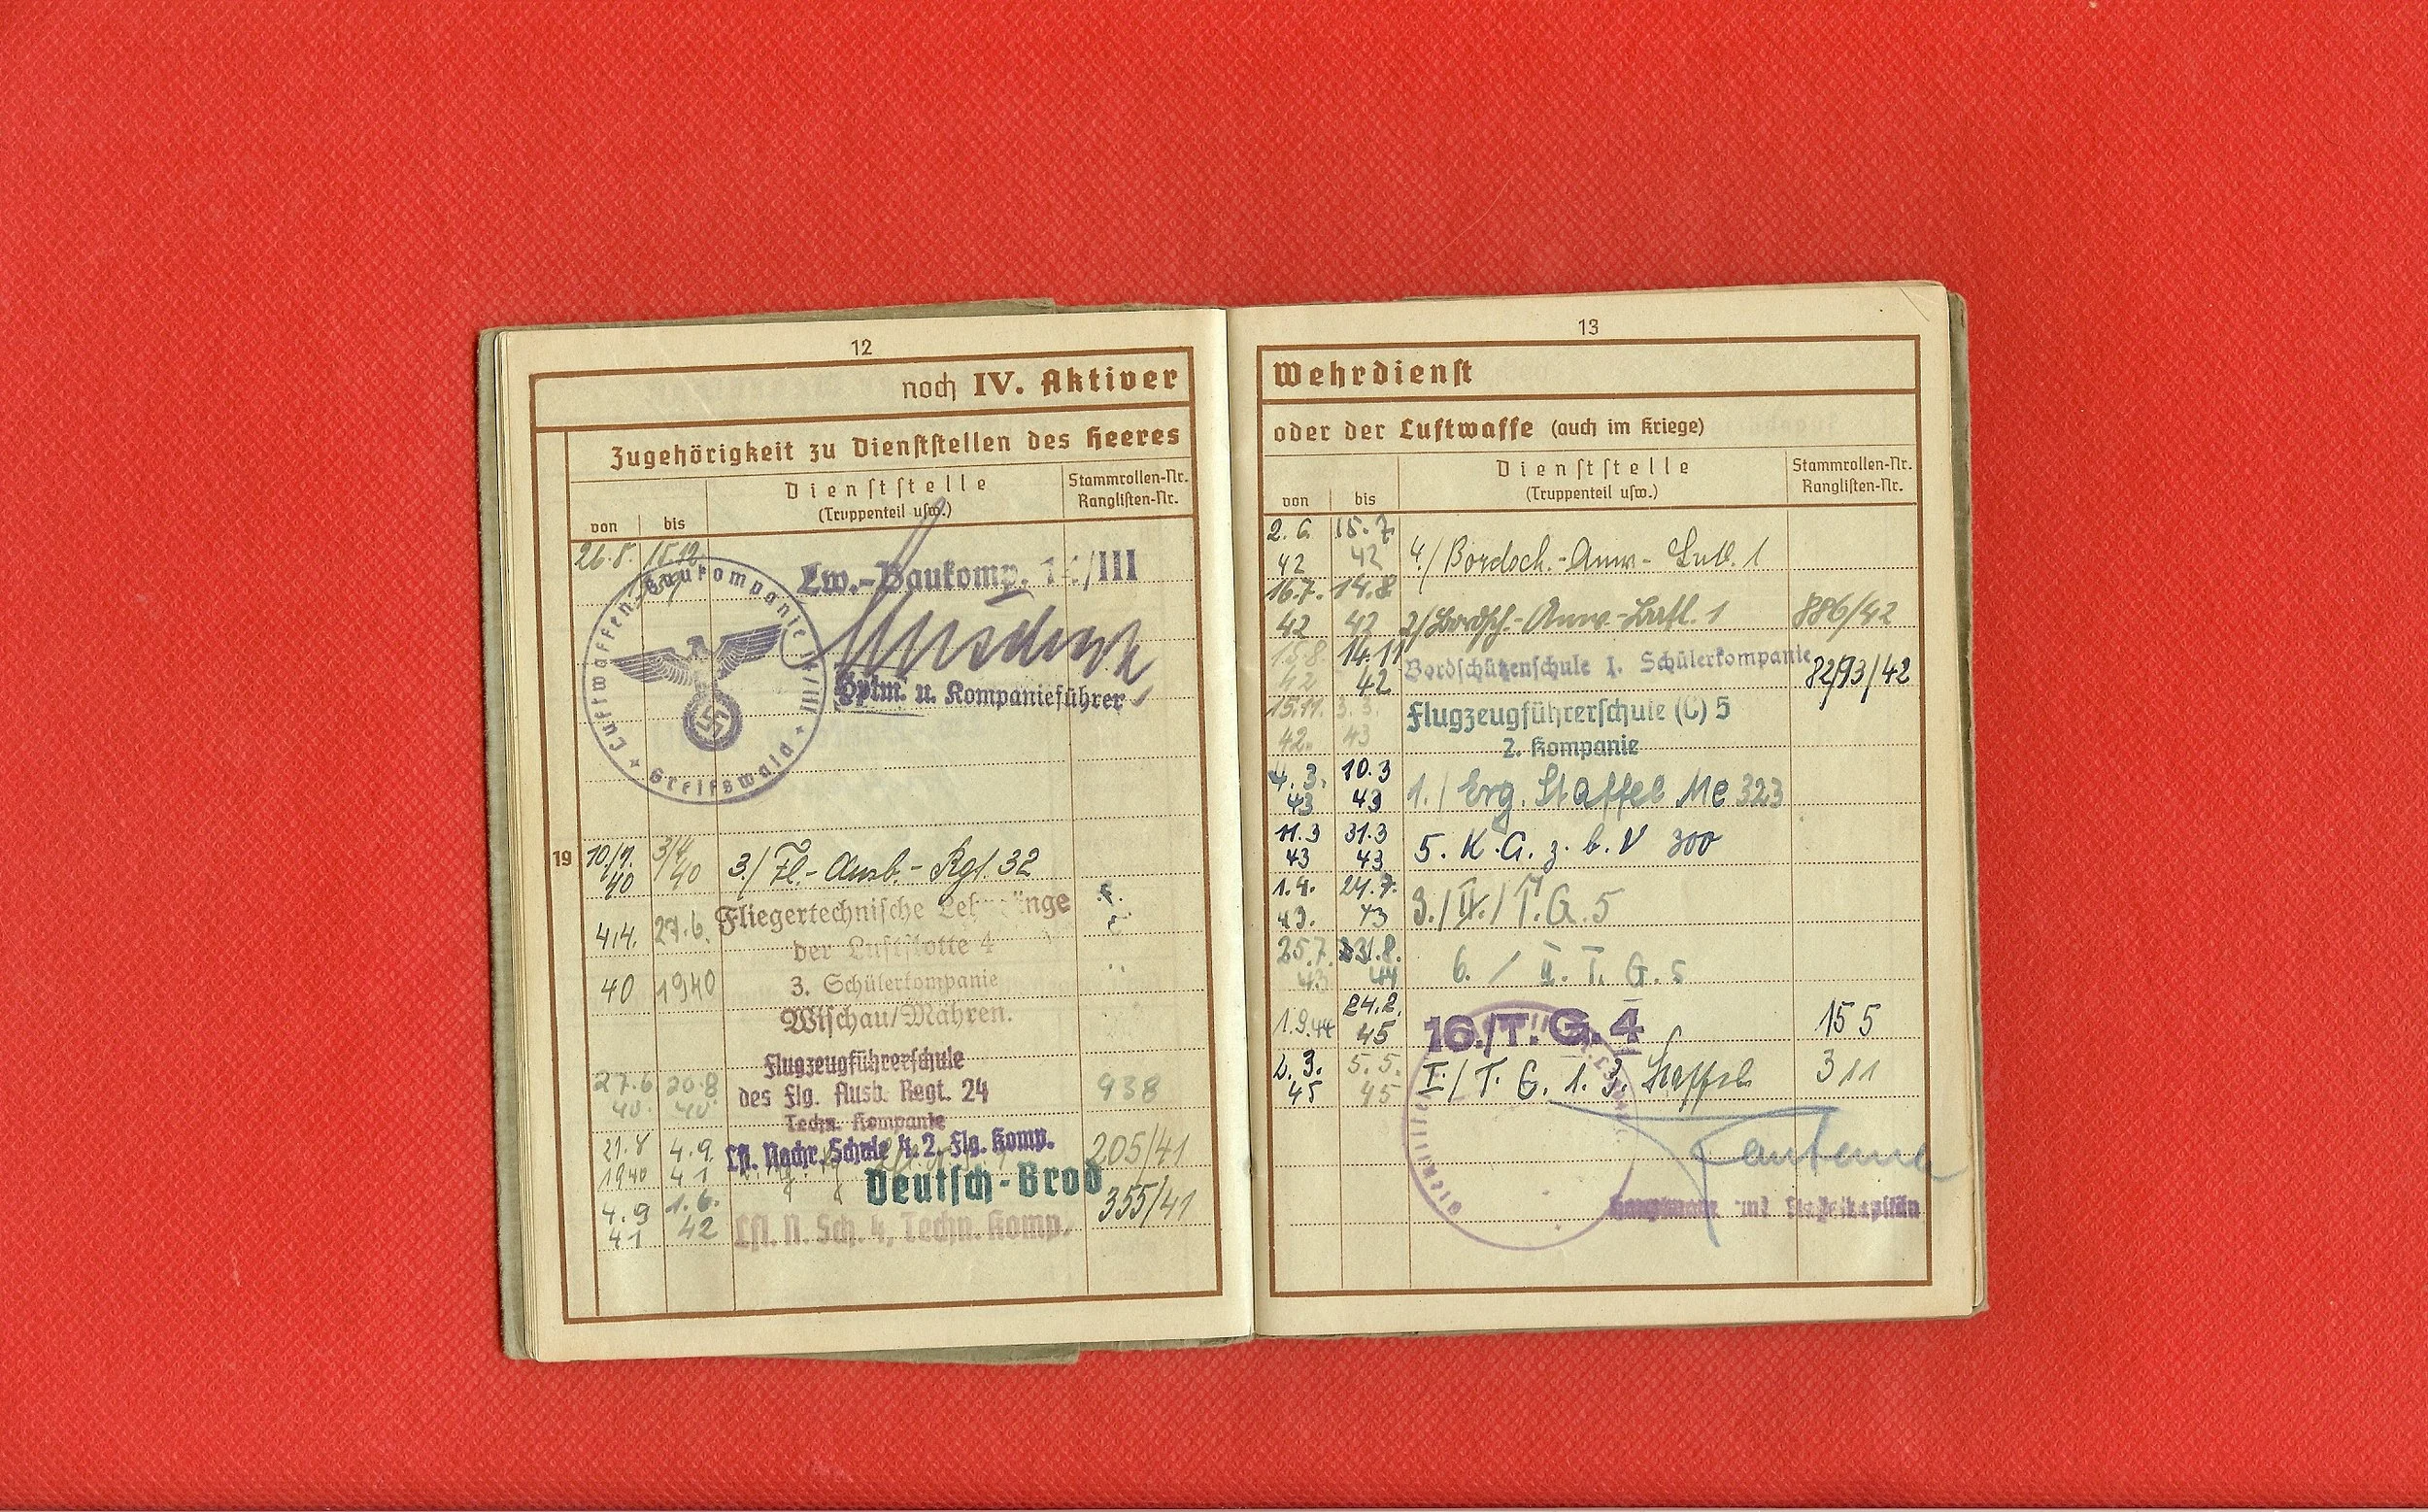 12
noch IV. Aktiver
Zugehörigkeit zu Dienststellen des Heeres
von bis Dienststelle Stammrollen-Nr.
(Truppenteil usw.) Ranglisten-Nr.
26.8. 15.12.
Lw.-Baukomp. /III
Luftwaffen-Baukompanie /III
Greifswald
Hptm. u. Kompanieführer
19
10./1. 40 3/4 40 3./ Fl.- Ausb.- Rgt. 32
4.4. 27.6. Fliegertechnische
der Luftflotte 4
40 1940 3. Schülerkompanie
Wischau/Mähren.
Flugzeugführerschule
27.6. 20.8 des Flg. Ausb. Regt. 24 938
40. 40. Techn. Kompanie
21.8 4.9. Lft. Nachr. Schule 4. 2. Flg. Komp. 205/41
1940 41 Deutsch-Brod
4.9 1.6. 355/41
41 42 Lft. N. Sch. 4, Techn. Komp.
13
Wehrdienst
oder der Luftwaffe (auch im Kriege)
von bis Dienststelle Stammrollen-Nr.
(Truppenteil usw.) Ranglisten-Nr.
2.6. 15.7.
42 42 4./ Bordsch.-Anw- 1
16.7. 14.8
42 42 2/ Bordsch.-Anw- 1 886/42
15.8. 14.11 Bordschützenschule I. Schülerkompanie
42 42 82/93/42
15.11. 3.3. Flugzeugführerschule (C) 5
42. 43 2. Kompanie
4.3. 10.3
43 43 1./ Erg. Staffel Me 323
11.3 31.3
43 43 5. K.G. z. b. V 300
1.4. 24.7.
43. 43 3./ T.G. 5
25.7. 31.8.
43 44 6. / II. T. G. 5
24.2.
1.9.44 45 16./T. G. 4 155
2.3. 5.5. I./ T. G. 1. 3. Staffel 311
45 45
Hauptmann und Staffelkapitän